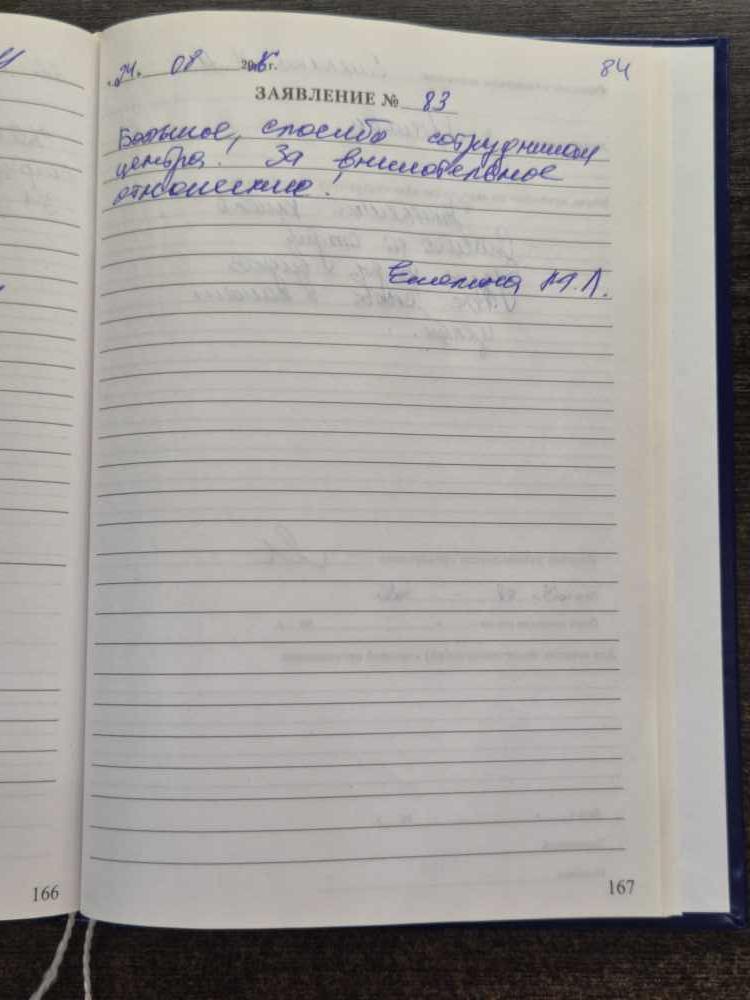 „24" 08 20 г.
84
ЗАЯВЛЕНИЕ № 83
Большое, спосибо сотрудникам
центра! За внимательное
отношению!
М.Л.
166
167